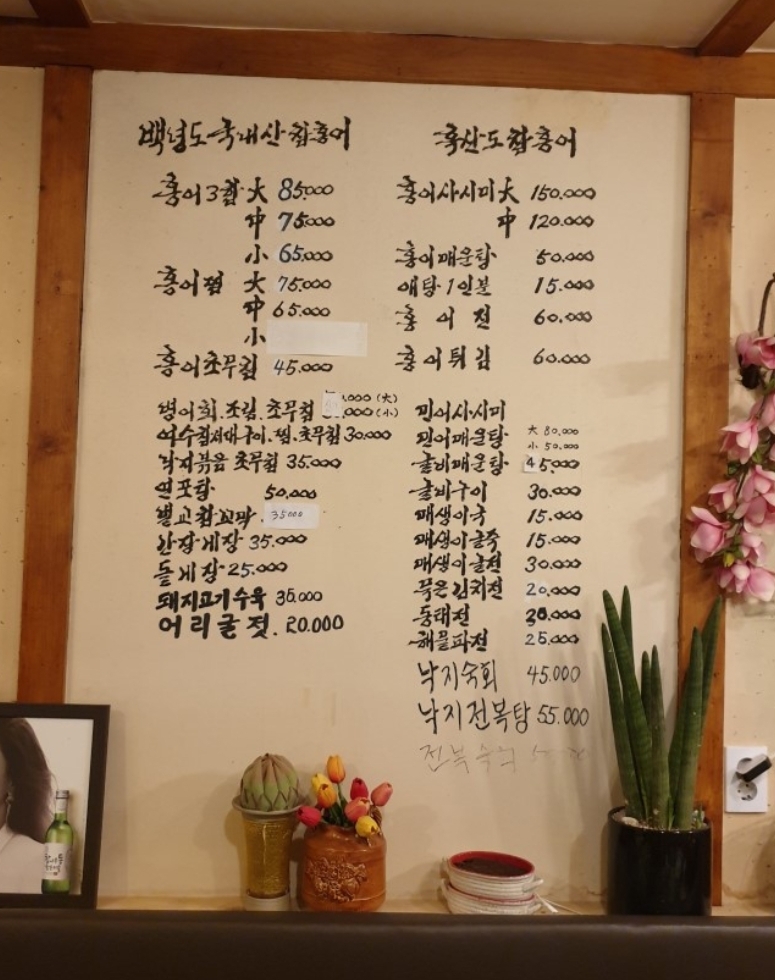 백령도국내산참홍어
홍어3합 大 85.000
中 75.000
小 65.000
홍어찜 大 75.000
中 65.000
小
홍어초무침 45.000
병어회.조림.초무침 .000(大)
.000(小)
여수참서대구이.찜.초무침 30.000
낙지볶음 초무침 35.000
연포탕 50.000
벌교참꼬막. 35000
간장게장 35.000
돌게장 25.000
돼지고기수육 35.000
어리굴젓. 20.000
흑산도참홍어
홍어사시미 大 150.000
中 120.000
홍어매운탕 50.000
애탕1인분 15.000
홍어전 60.000
홍어튀김 60.000
민어사시미
민어매운탕 大 80.000
小 50.000
굴비매운탕 45.000
굴비구이 30.000
매생이국 15.000
매생이굴죽 15.000
매생이굴전 30.000
묵은김치전 20.000
동태전 30.000
해물파전 25.000
낙지숙회 45.000
낙지전복탕 55.000
전복